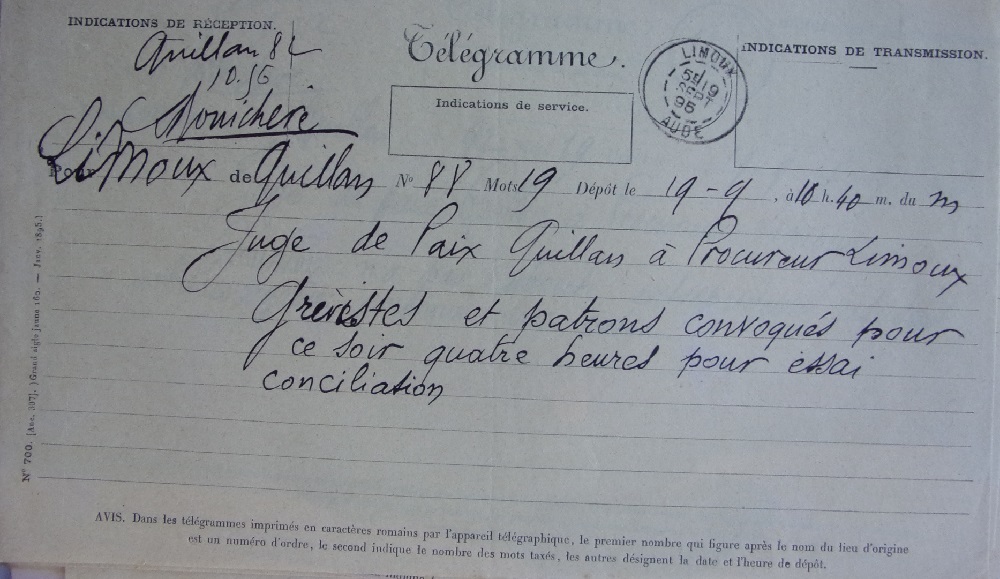 INDICATIONS DE RÉCEPTION.
Quillan 8
10.56
Télégramme.
Indications de service.
LIMOUX
19
SEPT
95
AUDE
INDICATIONS DE TRANSMISSION.
Pour Limoux de Quillan N° 88 Mots 19 Dépôt le 19-9, à 10 h. 40 m. du m
Juge de Paix Quillan à Procureur Limoux
Grevistes et patrons convoqués pour
ce soir quatre heures pour essai
conciliation
N° 700. [Anc. 397]. (Grand aigle jaune 160. — Janv. 1895.)
AVIS. Dans les télégrammes imprimés en caractères romains par l'appareil télégraphique, le premier nombre qui figure après le nom du lieu d'origine
est un numéro d'ordre, le second indique le nombre des mots taxés, les autres désignent la date et l'heure de dépôt.